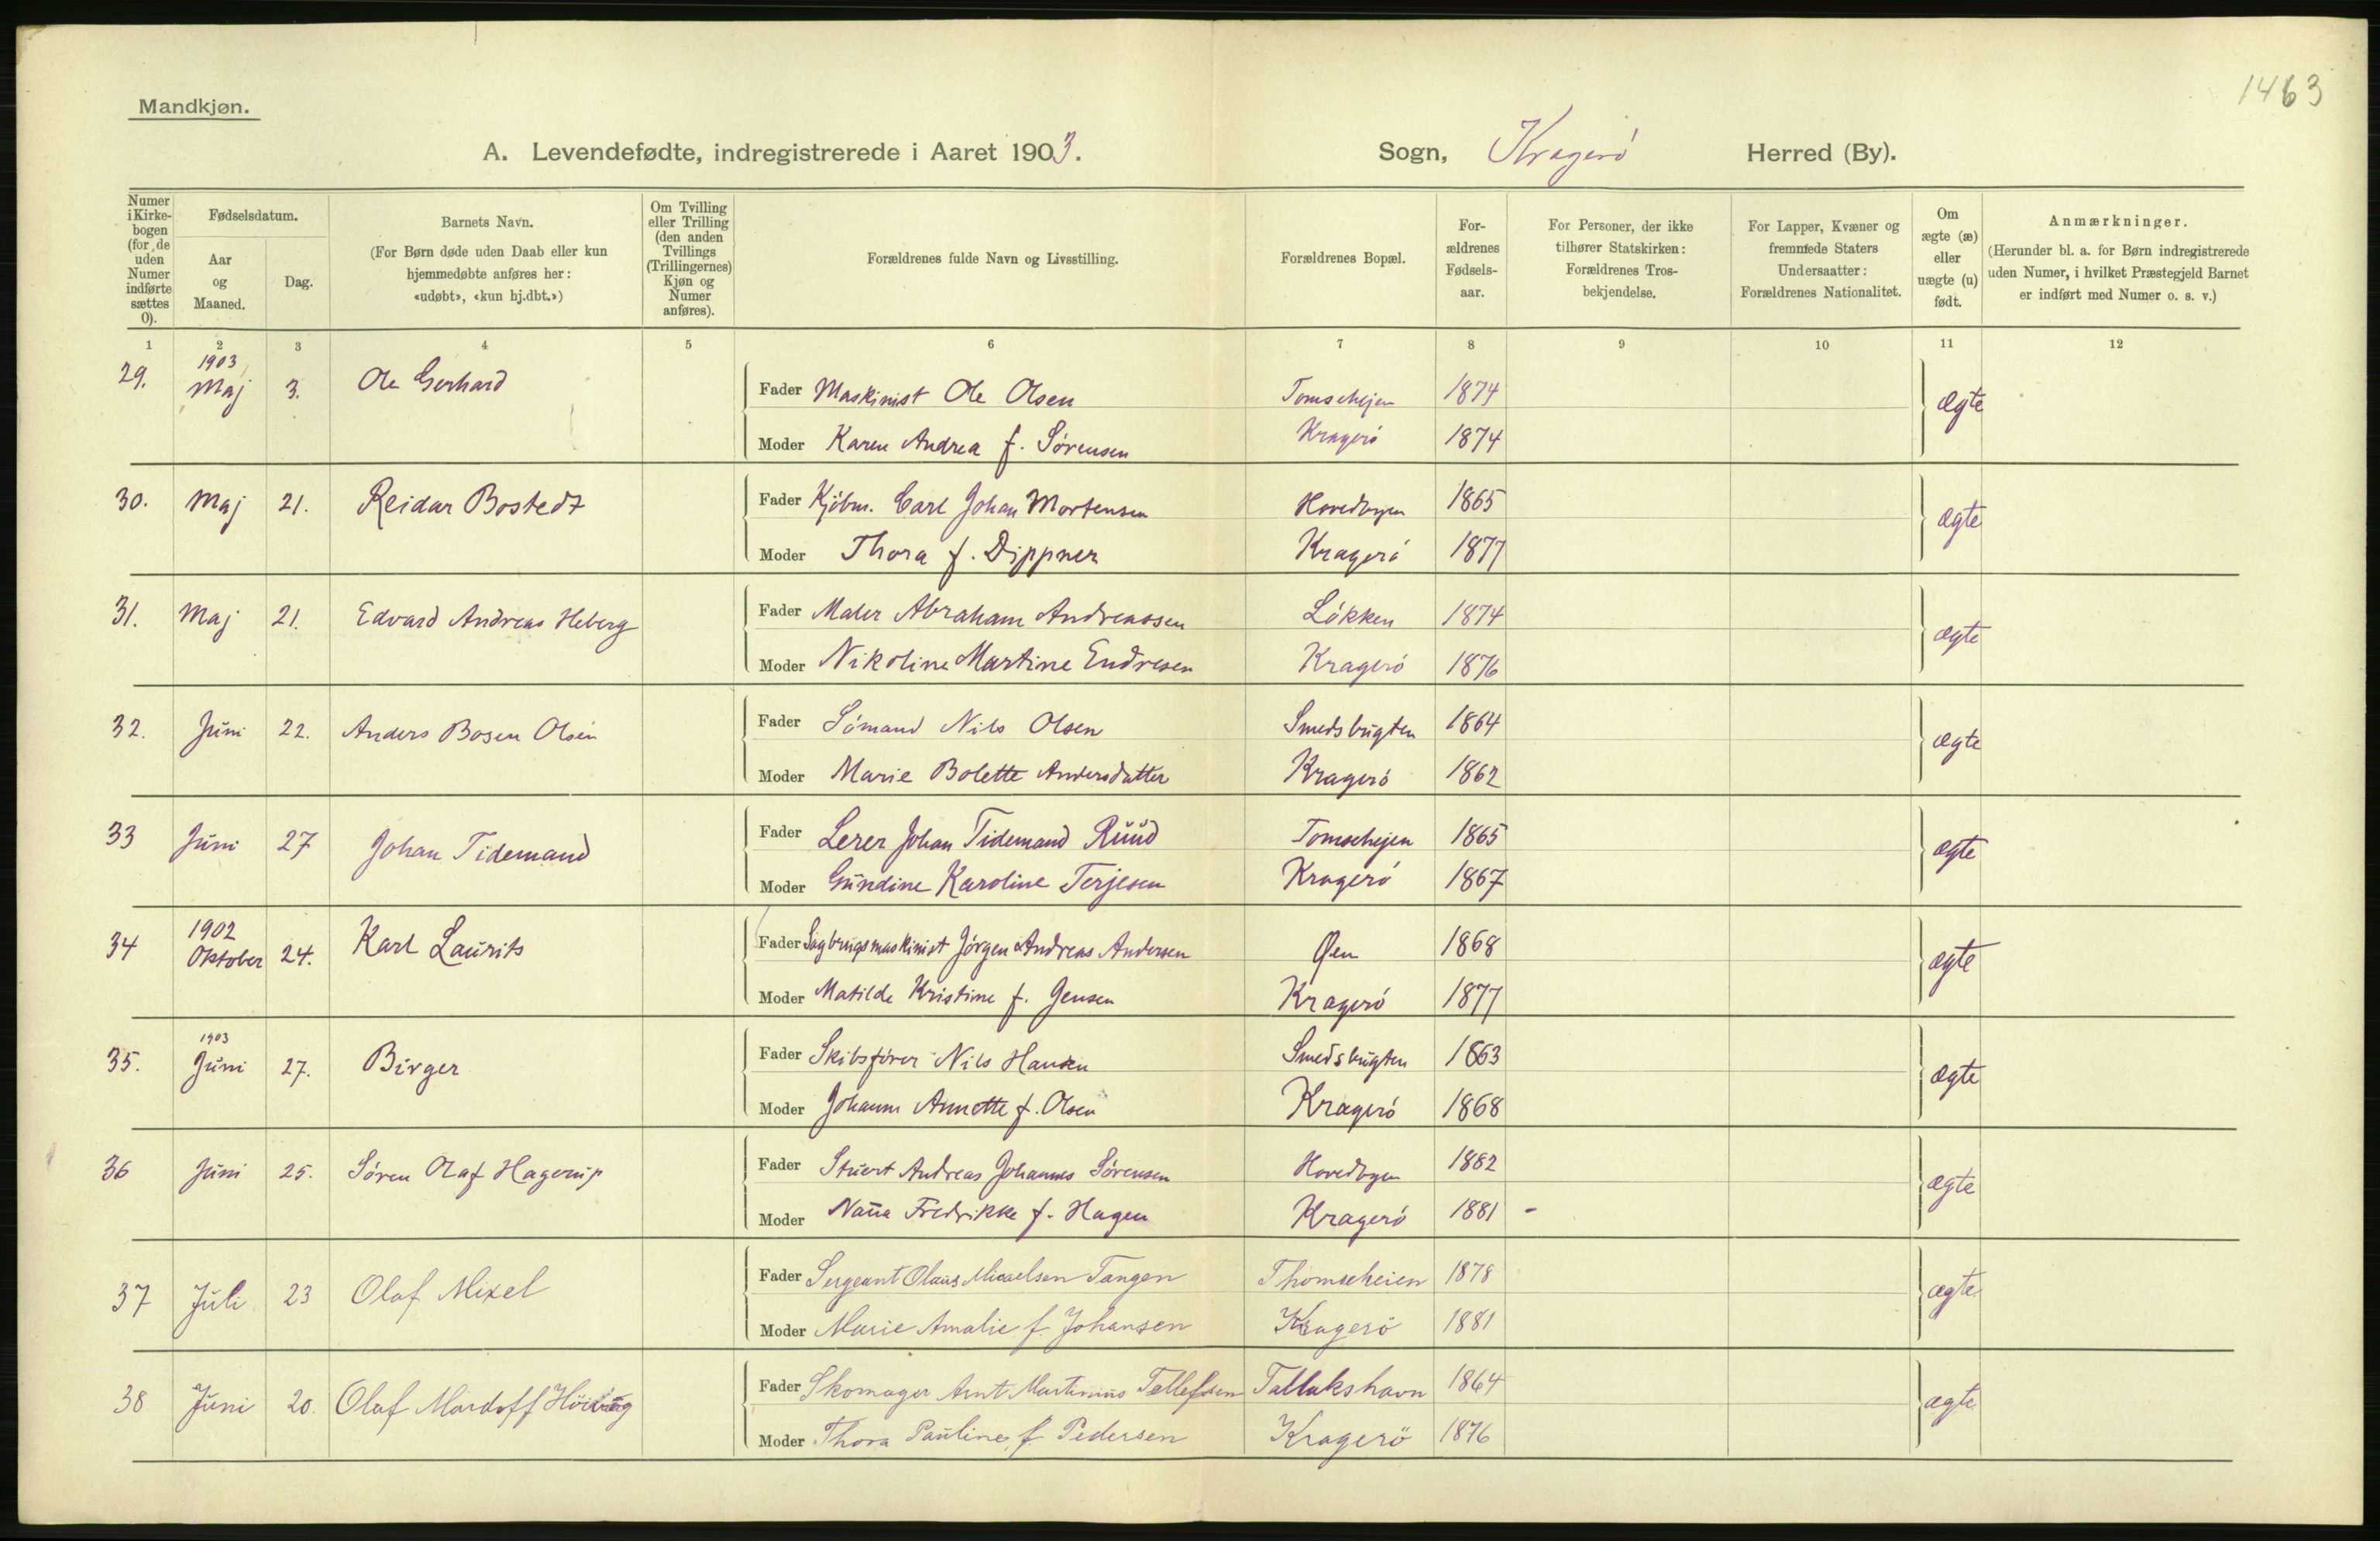 1463
Mandkjøn.
A. Levendefødte, indregistrerede i Aaret 1903. Sogn, Kragerö Herred (By).
Numer i Kirke-bogen (for de uden Numer indførte sættes 0).
Fødselsdatum.
Aar og Maaned.
Dag.
Barnets Navn.
(For Børn døde uden Daab eller kun hjemmedøbte anføres her: «udøbt», «kun hj.dbt.»)
Om Tvilling eller Trilling (den anden Tvillings (Trillingernes) Kjøn og Numer anføres).
Forældrenes fulde Navn og Livsstilling.
Forældrenes Bopæl.
For-ældrenes Fødsels-aar.
For Personer, der ikke tilhører Statskirken: Forældrenes Tros-bekjendelse.
For Lapper, Kvæner og fremmede Staters Undersaatter: Forældrenes Nationalitet.
Om ægte (æ) eller uægte (u) født.
Anmærkninger.
(Herunder bl. a. for Børn indregistrerede uden Numer, i hvilket Præstegjeld Barnet er indført med Numer o. s. v.)
1 2 3 4 5 6 7 8 9 10 11 12
29. 1903 Maj 3. Ole Gerhard Fader Maskinist Ole Olsen Tomsehejen 1874 ægte
Moder Karen Andrea f. Sørensen Kragerö 1874
30. Maj 21. Reidar Bostedt Fader Kjöbm. Carl Johan Mortensen Hovedbyen 1865 ægte
Moder Thora f. Dippner Kragerö 1877
31. Maj 21. Edvard Andreas Heberg Fader Maler Abraham Andreassen Lökken 1874 ægte
Moder Nikoline Martine Endresen Kragerö 1876
32. Juni 22. Anders Bosen Olsen Fader Sömand Nils Olsen Smedsbugten 1864 ægte
Moder Marie Bolette Andersdatter Kragerö 1862
33 Juni 27 Johan Tidemand Fader Lerer Johan Tidemand Ruud Tomsehejen 1865 ægte
Moder Gundine Karoline Terjesen Kragerö 1867
34 1902 Oktober 24. Karl Laurits Fader Sagbrugsmaskinist Jörgen Andreas Andersen Øen 1868 ægte
Moder Matilde Kristine f. Jensen Kragerö 1877
35. 1903 Juni 27. Birger Fader Skibsförer Nils Hansen Smedsbugten 1863 ægte
Moder Johanne Annette f. Olsen Kragerö 1868
36 Juni 25. Sören Olaf Hagerup Fader Stuert Andreas Johannes Sörensen Hovedbyen 1882 ægte
Moder Nan̄a Fredrikke f. Hagen Kragerö 1881 -
37 Juli 23 Olaf Mixel Fader Sergeant Olaus Micaelsen Tangen Thomseheien 1878 ægte
Moder Marie Amalie f. Johansen Kragerö 1881
38 Juni 20. Olaf Mardoff Fader Skomager Arnt Martinius Tellefsen Tallakshavn 1864 ægte
Moder Thora Pauline f Pedersen Kragerö 1876